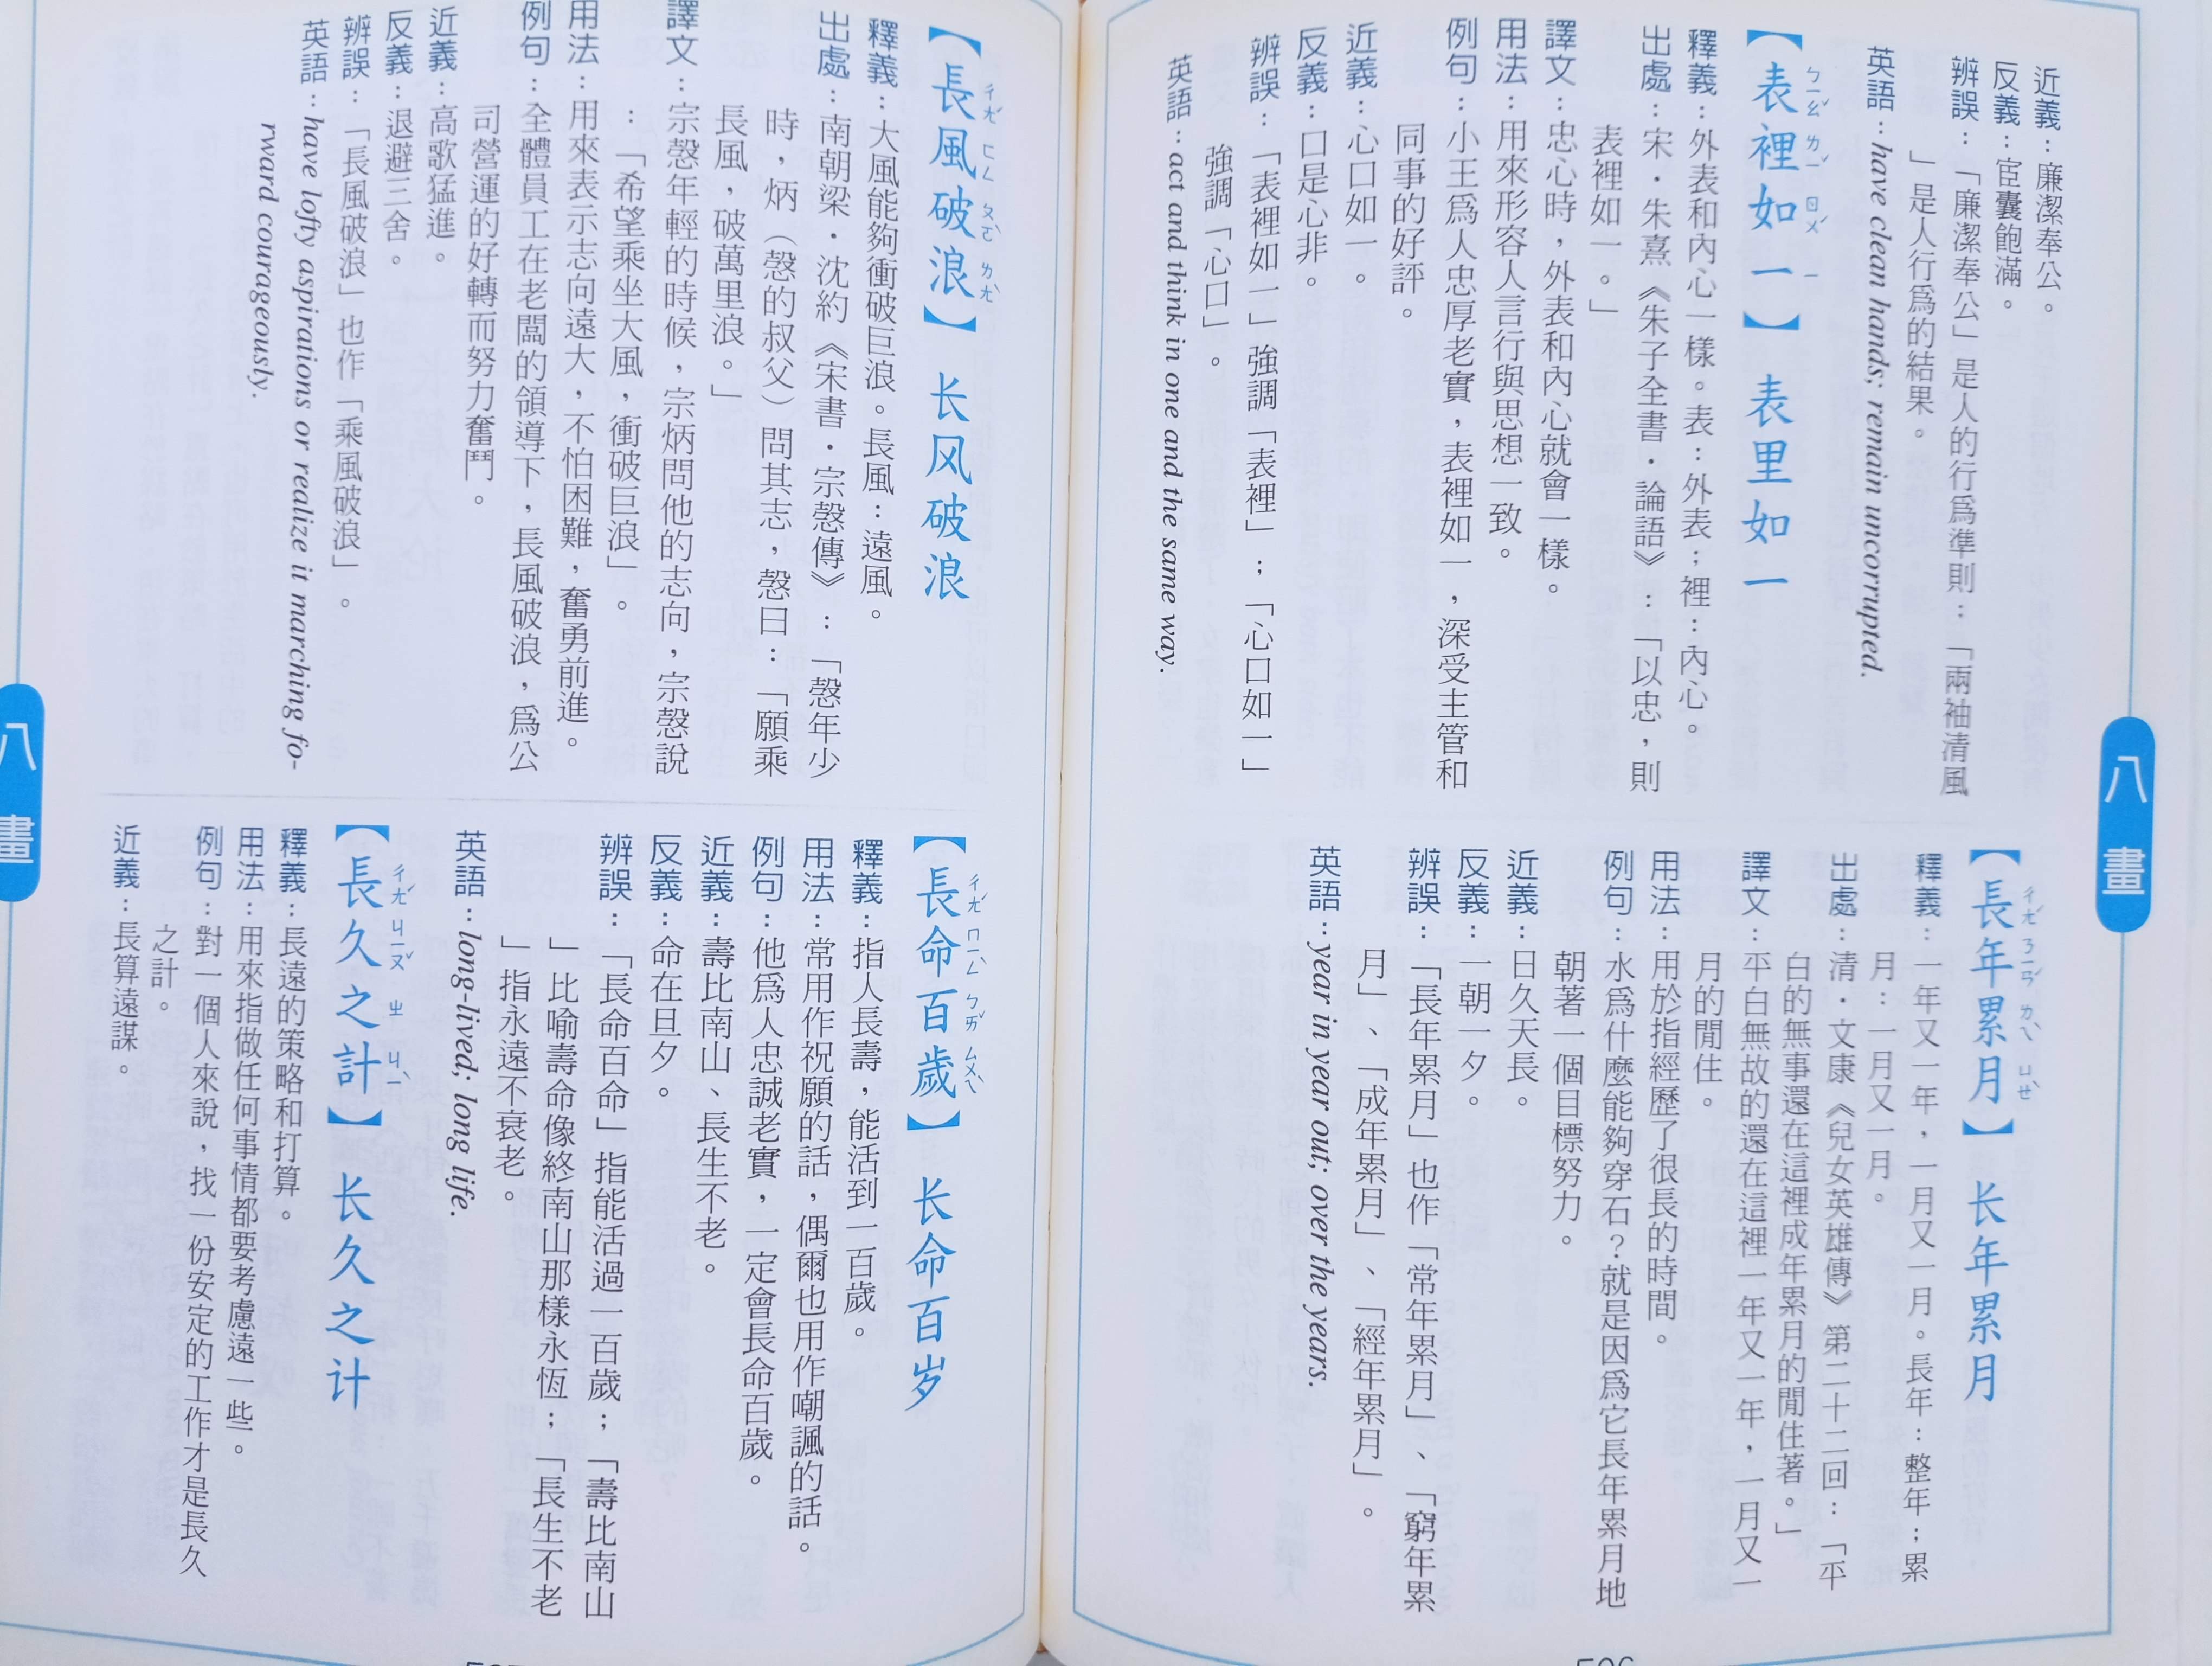 近義：廉潔奉公。
反義：宦囊飽滿。
辨誤：「廉潔奉公」是人的行爲準則；「兩袖清風
」是人行爲的結果。
英語：have clean hands; remain uncorrupted.
【表裡如一】 表里如一
ㄅㄧㄠˇ ㄌㄧˇ ㄖㄨˊ ㄧ
釋義：外表和內心一樣。表：外表；裡：內心。
出處：宋·朱熹《朱子全書·論語》：「以忠，則
表裡如一。」
譯文：忠心時，外表和內心就會一樣。
用法：用來形容人言行與思想一致。
例句：小王爲人忠厚老實，表裡如一，深受主管和
同事的好評。
近義：心口如一。
反義：口是心非。
辨誤：「表裡如一」強調「表裡」；「心口如一」
強調「心口」。
英語：act and think in one and the same way.
八畫
【長年累月】 长年累月
ㄔㄤˊ ㄋㄧㄢˊ ㄌㄟˇ ㄩㄝˋ
釋義：一年又一年，一月又一月。長年：整年；累
月：一月又一月。
出處：清·文康《兒女英雄傳》第二十二回：「平
白的無事還在這裡成年累月的閒住著。」
譯文：平白無故的還在這裡一年又一年，一月又一
月的閒住。
用法：用於指經歷了很長的時間。
例句：水爲什麼能夠穿石？就是因爲它長年累月地
朝著一個目標努力。
近義：日久天長。
反義：一朝一夕。
辨誤：「長年累月」也作「常年累月」、「窮年累
月」、「成年累月」、「經年累月」。
英語：year in year out; over the years.
【長風破浪】 长风破浪
ㄔㄤˊ ㄈㄥ ㄆㄛˋ ㄌㄤˋ
釋義：大風能夠衝破巨浪。長風：遠風。
出處：南朝梁·沈約《宋書·宗愨傳》：「愨年少
時，炳（愨的叔父）問其志，愨曰：「願乘
長風，破萬里浪。」
譯文：宗愨年輕的時候，宗炳問他的志向，宗愨說
：「希望乘坐大風，衝破巨浪」。
用法：用來表示志向遠大，不怕困難，奮勇前進。
例句：全體員工在老闆的領導下，長風破浪，爲公
司營運的好轉而努力奮鬥。
近義：高歌猛進。
反義：退避三舍。
辨誤：「長風破浪」也作「乘風破浪」。
英語：have lofty aspirations or realize it marching fo-
rward courageously.
【長命百歲】 长命百岁
ㄔㄤˊ ㄇㄧㄥˋ ㄅㄞˇ ㄙㄨㄟˋ
釋義：指人長壽，能活到一百歲。
用法：常用作祝願的話，偶爾也用作嘲諷的話。
例句：他爲人忠誠老實，一定會長命百歲。
近義：壽比南山、長生不老。
反義：命在旦夕。
辨誤：「長命百命」指能活過一百歲；「壽比南山
」比喻壽命像終南山那樣永恆；「長生不老
」指永遠不衰老。
英語：long-lived; long life.
【長久之計】 长久之计
ㄔㄤˊ ㄐㄧㄡˇ ㄓ ㄐㄧˋ
釋義：長遠的策略和打算。
用法：用來指做任何事情都要考慮遠一些。
例句：對一個人來說，找一份安定的工作才是長久
之計。
近義：長算遠謀。
八畫